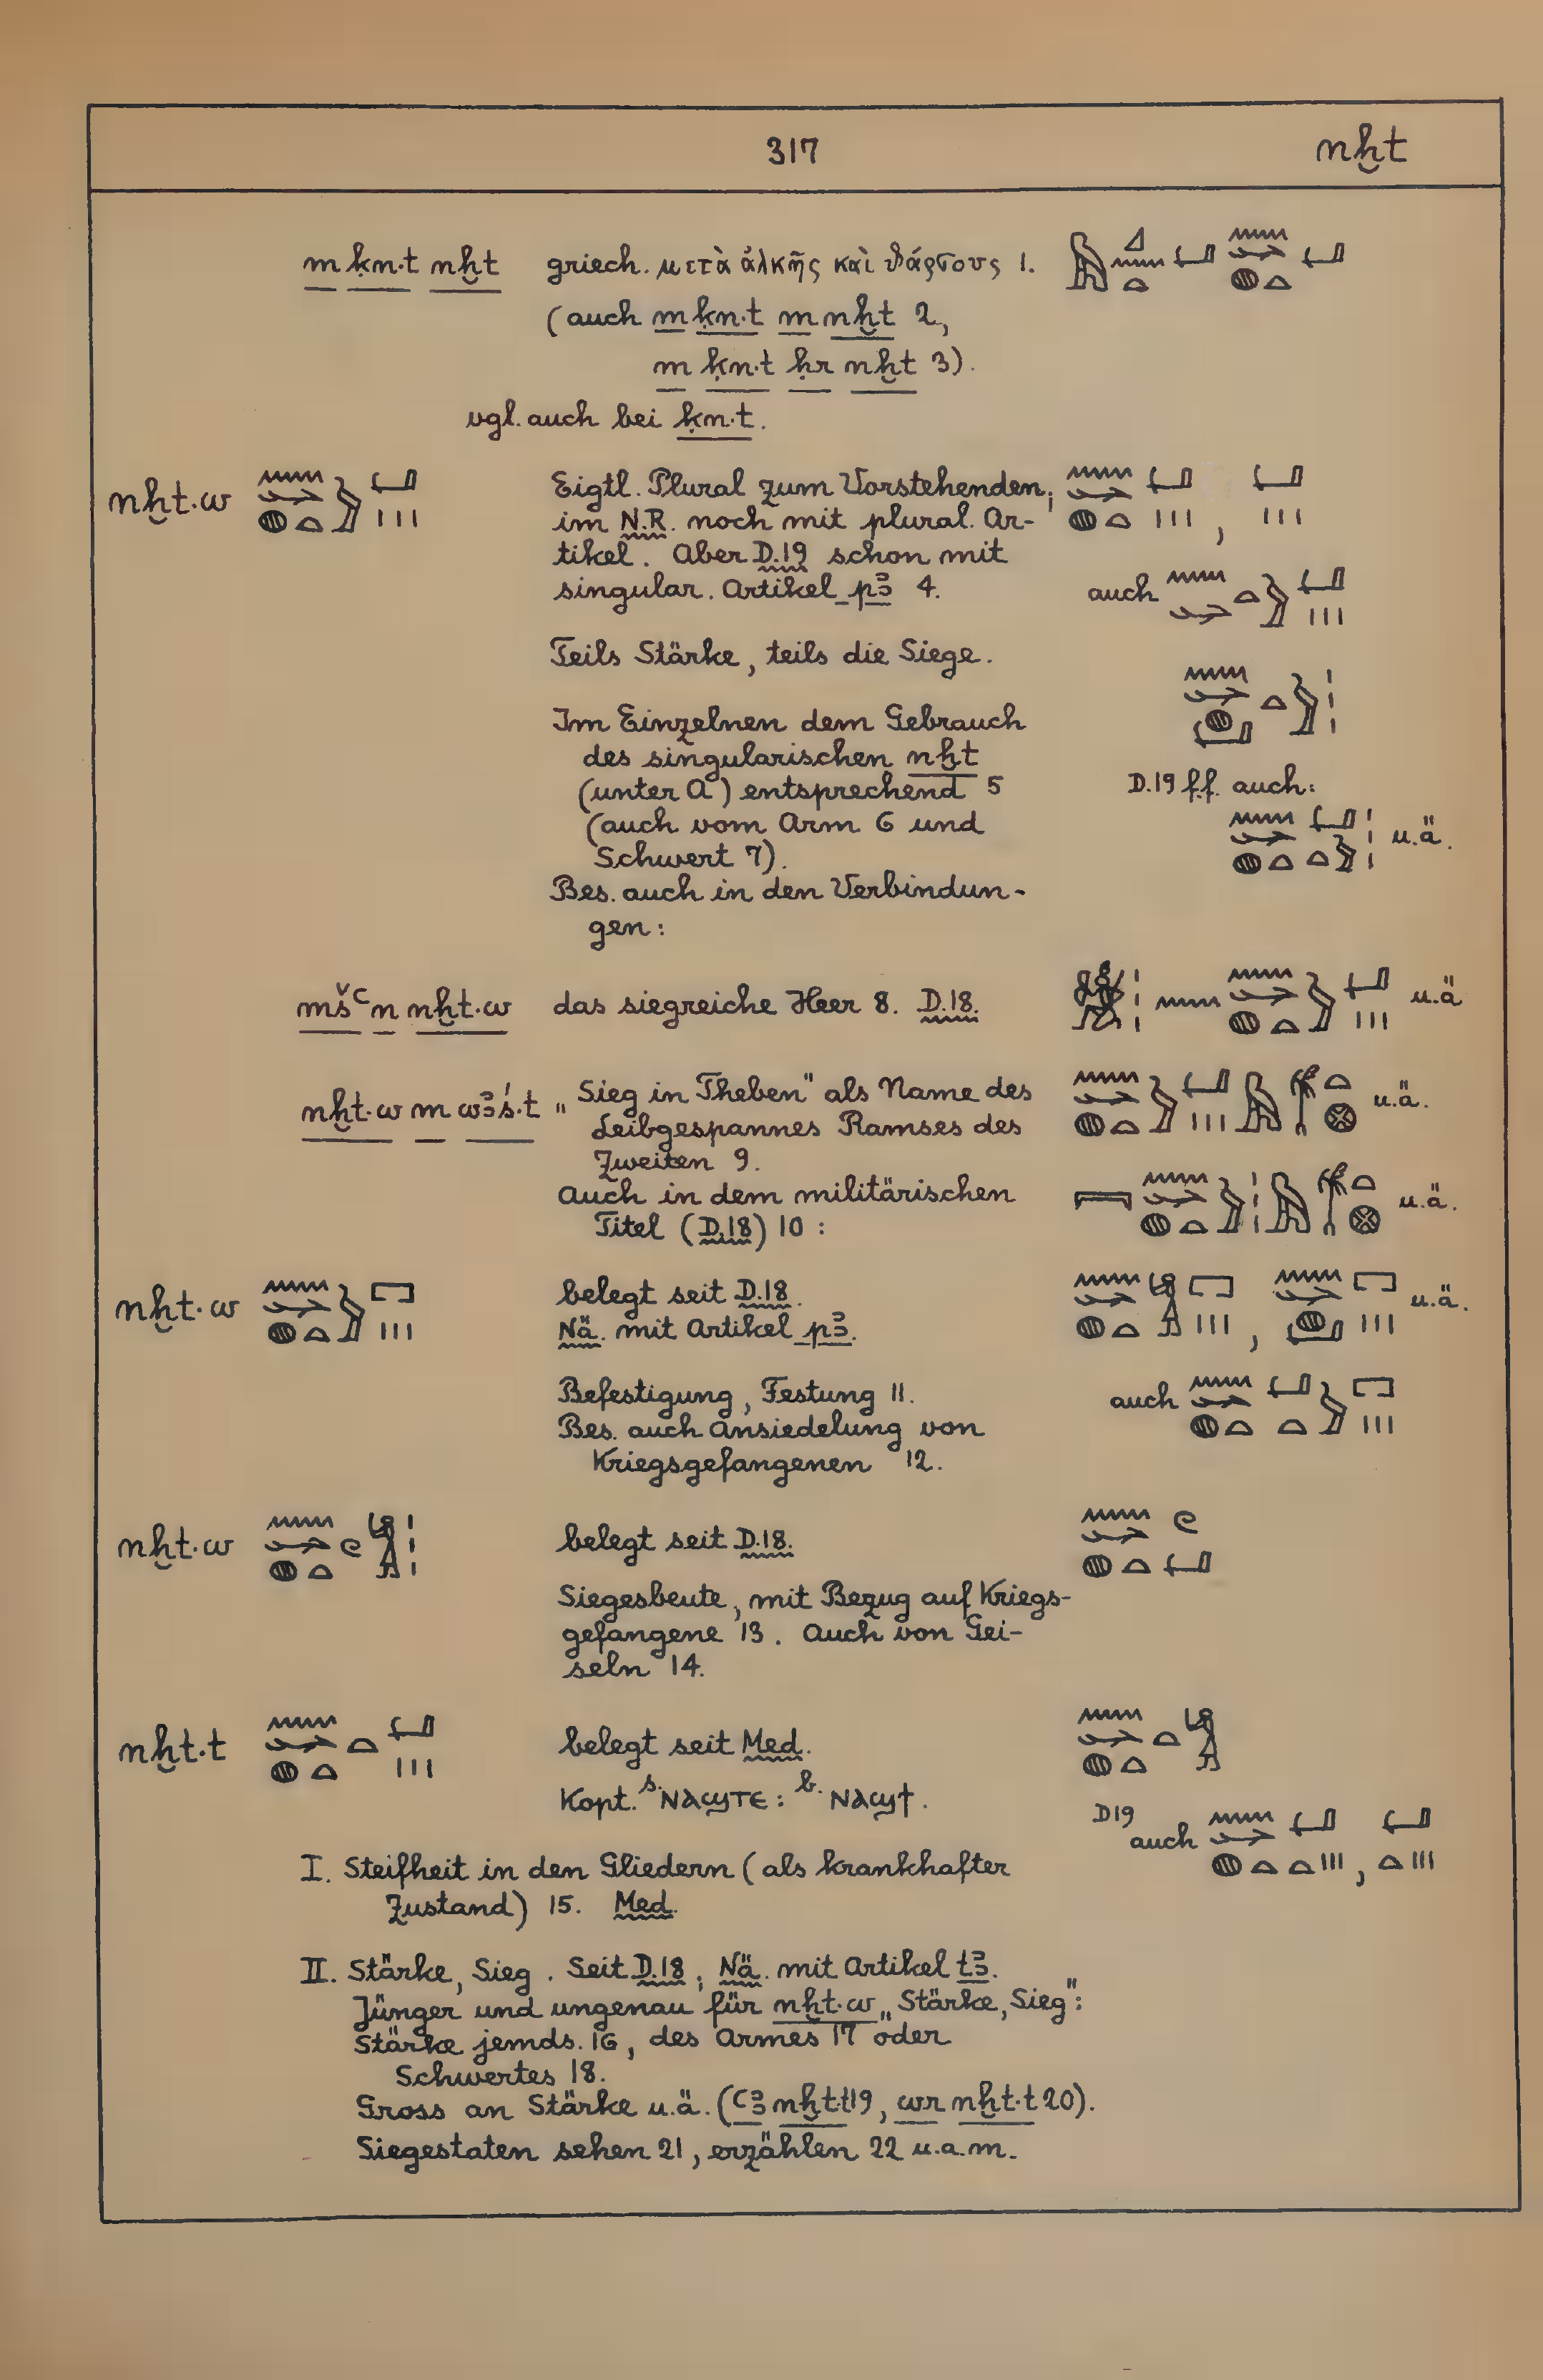 317
nḫt
m ḳn·t nḫt griech. μετὰ ἀλκῆς καὶ θάρσους 1.
(auch m ḳn·t m nḫt 2,
m ḳn·t ḥr nḫt 3).
vgl. auch bei ḳn·t.
nḫt·w Eigtl. Plural zum Vorstehenden;
im N.R. noch mit plural. Ar-
tikel. Aber D.19 schon mit
singular. Artikel pꜣ 4.
auch
Teils Stärke, teils die Siege.
Im Einzelnen dem Gebrauch
des singularischen nḫt
(unter A) entsprechend 5
D.19 ff. auch:
(auch vom Arm 6 und
u.ä.
Schwert 7).
Bes. auch in den Verbindun-
gen:
mšꜥ n nḫt·w das siegreiche Heer 8. D.18. u.ä
nḫt·w m wꜣś·t „Sieg in Theben" als Name des u.ä.
Leibgespannes Ramses des
Zweiten 9.
Auch in dem militärischen u.ä.
Titel (D.18) 10 :
nḫt·w belegt seit D.18. u.ä.
Nä. mit Artikel pꜣ.
Befestigung, Festung 11. auch
Bes. auch Ansiedelung von
Kriegsgefangenen 12.
nḫt·w belegt seit D.18.
Siegesbeute, mit Bezug auf Kriegs-
gefangene 13. Auch von Gei-
seln 14.
nḫt·t belegt seit Med.
Kopt. s. ⲚⲀϢⲦⲈ : b. ⲚⲀϢϮ.
D19
auch
I. Steifheit in den Gliedern (als krankhafter
Zustand) 15. Med.
II. Stärke, Sieg. Seit D.18; Nä. mit Artikel tꜣ.
Jünger und ungenau für nḫt·w „Stärke, Sieg":
Stärke jemds. 16, des Armes 17 oder
Schwertes 18.
Gross an Stärke u.ä. (ꜥꜣ nḫt·t 19, wr nḫt·t 20).
Siegestaten sehen 21, erzählen 22 u.a.m.